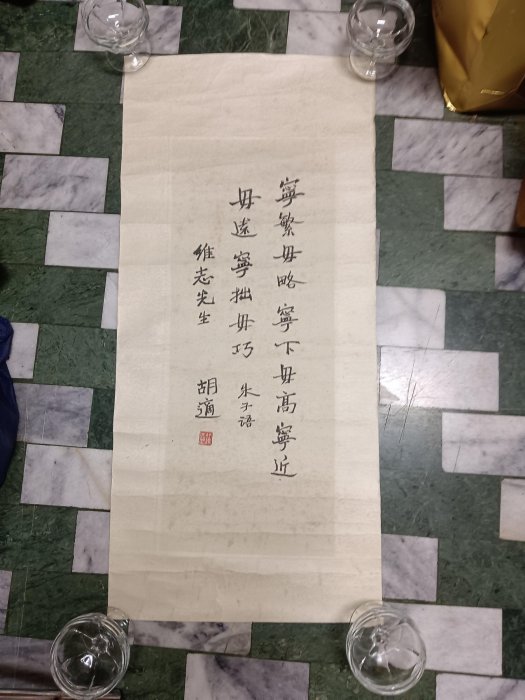 寧繁毋略寧下毋高寧近
毋遠寧拙毋巧 朱子語
維志先生 胡適